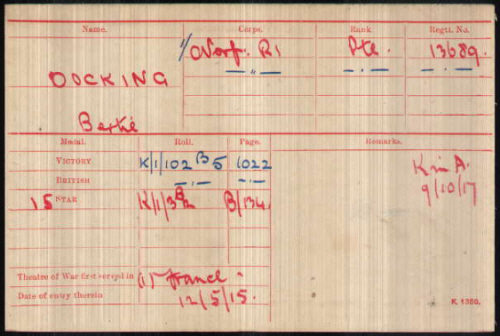 Name. Corps. Rank. Regtl. No.
1/ Norf. R1 Pte. 13689.
DOCKING
Bertie
Medal. Roll. Page. Remarks.
VICTORY K/1/102 B5 1022 K in A.
BRITISH 9/10/17
15 STAR K/1/3B2 B/134.
Theatre of War first served in (1) France
Date of entry therein 12/5/15.
K 1380.